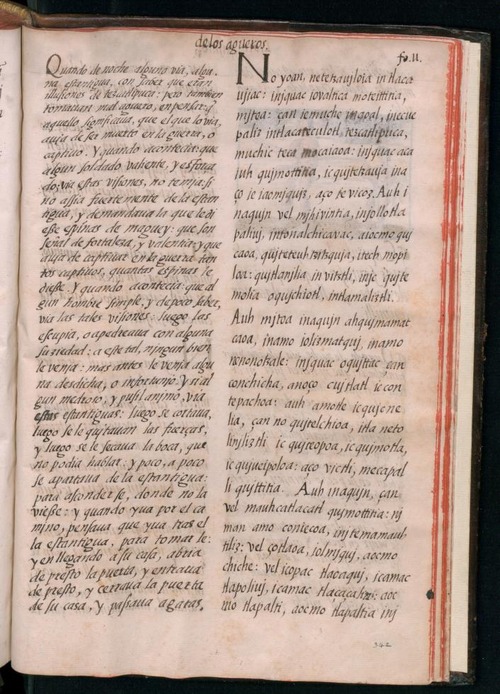 de los agueros.
fo. 11.
Quando de noche alguno via, algu-
na estantigua, con saber que eran
illusiones de tezcatlipuca: pero tambien
tomauan mal aguero, en pensar: q̃
aquello significaua, que el que lo via,
auia de ser muerto en la guerra, o
captiuo. Y quando acontecia: que
algun soldado valiente, y esforça
do, via estas visiones, no temia: si
no assia fuertemente de la estan
tigua, y demandaua la que le di
esse espinas de maguey: que son
señal de fortaleza, y valentia: y que
auia de captiuar en la guerra tan
tos captiuos, quantas espinas le
diesse. Y quando acontecia: que al
gun hombre simple, y de poco saber,
via las tales visiones: luego las
escupia, o apedreaua con alguna
suziedad: a este tal, ningun bien
le venia: mas antes le venia algu
na desdicha, o infortunio. Y si al
gun medroso, y pusilanimo, via
estas estantiguas: luego se cortaua,
luego se le quitauan las fuerças,
y luego se le secaua la boca, que
no podia hablar, y poco, a poco
se apartaua de la estantigua:
para asconderse, donde no la
viesse: y quando yua por el ca
mino, pensaua que yua tras el
la estantigua, para tomarle:
y en llegando a su casa, abria
de presto la puerta, y entraua
de presto, y cerraua la puerta
de su casa, y passaua a gatas,
No yoan, netetzauiloia in tlaca
ujiac: injquac iovaltica motettitia,
mjtoa: çan ie muche ineoal, inecue
paliz in tlacatecolotl, tezcatlipuca,
muchic teca mocaiaoa: injquac aca
iuh qujmottitia, ic qujtetzauja ina
ço ie iaomjqujz, aço te vicoz. Auh i
naqujn vel mjhivintia, in iollotla
paliuj, in tonalchicavac, aiocmo quj
caoa, qujteteuhtzitzquja, itech mopi
loa: quitlanjlia in vitztli, inic qujte
molia oqujchiotl, in tlamaliztli.
Auh mjtoa inaqujn ahqujmamat
caoa, in amo iolizmatquj, in amo
nenonotzale: injquac oqujttac, çan
conchicha, anoço cujtlatl ic con
tepachoa: auh amotle icqujcne
lia, can no qujtelchioa, itla neto
linjliztli ic qujteopoa, ic qujmotla,
ic qujuelpoloa: aço victli, mecapal
li quittitia. Auh inaqujn, çan
vel mauhcatlacatl qujmottitia: nj
man amo coniecoa, injtemamauh
tiliz: vel çotlaoa, iolmjquj, aocmo
chiche: vel icopac tlaoaquj, icamac
tlapoliuj, icamac tlacacahui: aoc
mo tlapalti, aocmo tlapaltia inj
342